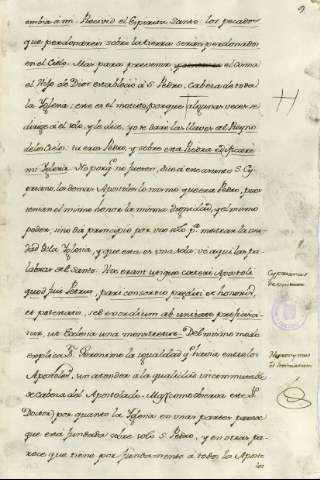 embia à mi. Recivid el Espiritu Santo: los pecados
que perdonareis sobre la tierra seran perdonados
en el Cielo. Mas para prevenir el Cisma
el Hijo de Dios establecio à S. Pedro, cabeza de toda
la Iglesia: este es el motivo, porque algunas veces se
dirige à el solo, y le dice, yo te daré las llaves del Reyno
de los Cielos: tu eres Pedro, y sobre esta Piedra edificaré
mi Iglesia. No porq.e no fuesen, dice à este asunto S. Cy-
priano, los demas Apostoles lo mismo que era Pedro, pues
tenian el mismo honor la misma Dignidad, y el mismo
poder; sino da principio por uno solo p.a mostrar la uni-
dad de la Iglesia, y que esta es una sola: vè aqui las pa-
labras del Santo. Hoc erant utique cæteri Apostoli
quod fuit Petrus, pari consortio præditi et honoris,
et potestatis, sed exordium ab unitate profisci-
tur, ut Eclesia una monstretur. Del mismo modo
explica S. Geronimo la igualdad q.e havia entre los
Apostoles, sin atender a la qualidad incommutable
de cabeza del Apostolado. Mas (como observa este S.
Doctor) por quanto la Iglesia en unas partes parece
que está fundada sobre solo S. Pedro, y en otras pa-
rece que tiene por fundamento a todos los Aposto-
los
9
Cyprianus
Hieronymus